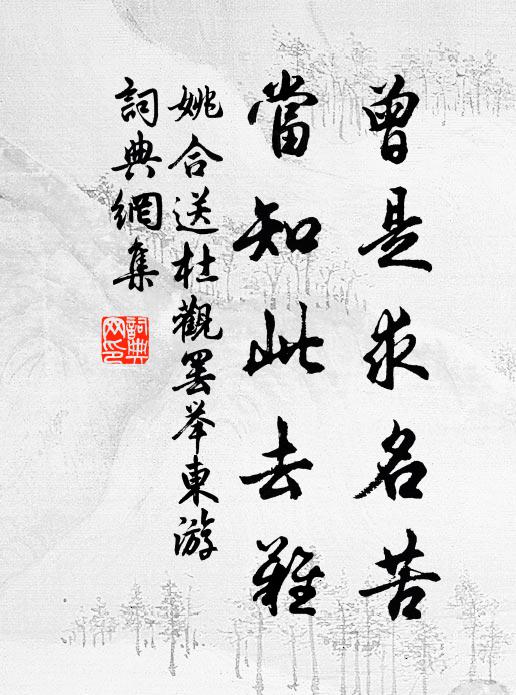 曾是求名苦
當知此去難
姚合送杜觀罢举東游
詞典網集
詞典網印